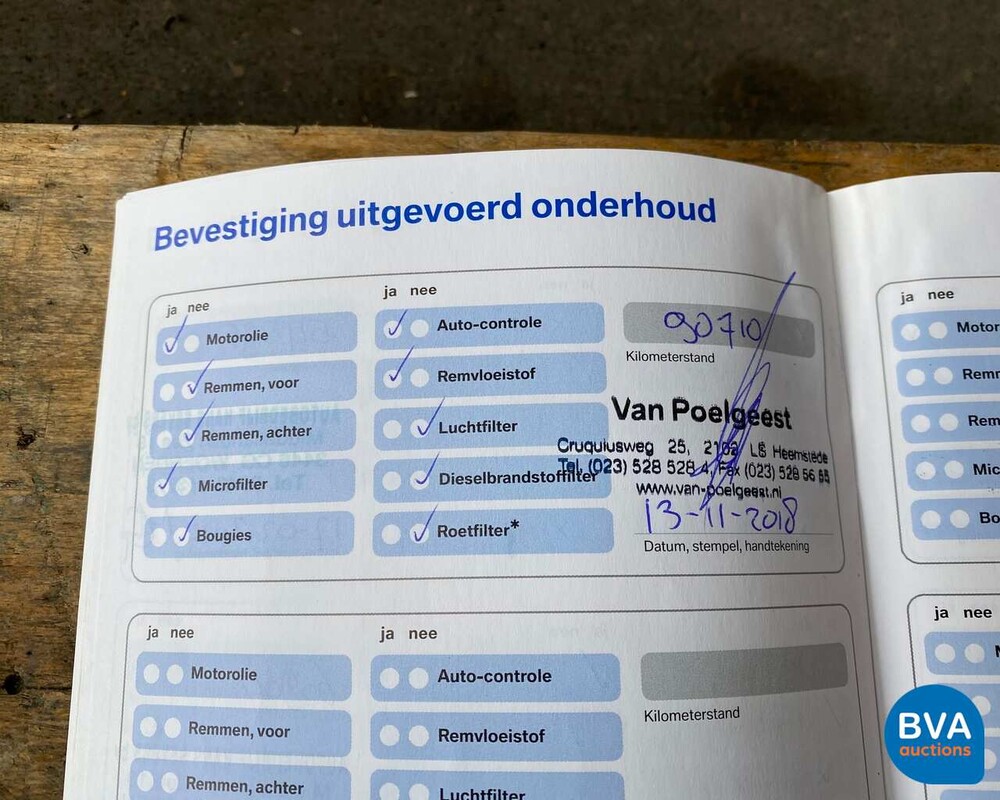 Bevestiging uitgevoerd onderhoud
ja nee
Motorolie
Remmen, voor
Remmen, achter
Microfilter
Bougies
ja nee
Auto-controle
Remvloeistof
Luchtfilter
Dieselbrandstoffilter
Roetfilter*
90710
Kilometerstand
Van Poelgeest
Cruquiusweg 25, 2102 LS Heemstede
Tel. (023) 528 528 4, Fax (023) 528 56 65
www.van-poelgeest.nl
13-11-2018
Datum, stempel, handtekening
ja nee
Motorolie
Remmen, voor
Remmen, achter
ja nee
Auto-controle
Remvloeistof
Luchtfilter
Kilometerstand
ja nee
Motor
Remm
Rem
Mic
Bo
ja nee
BVA
auctions